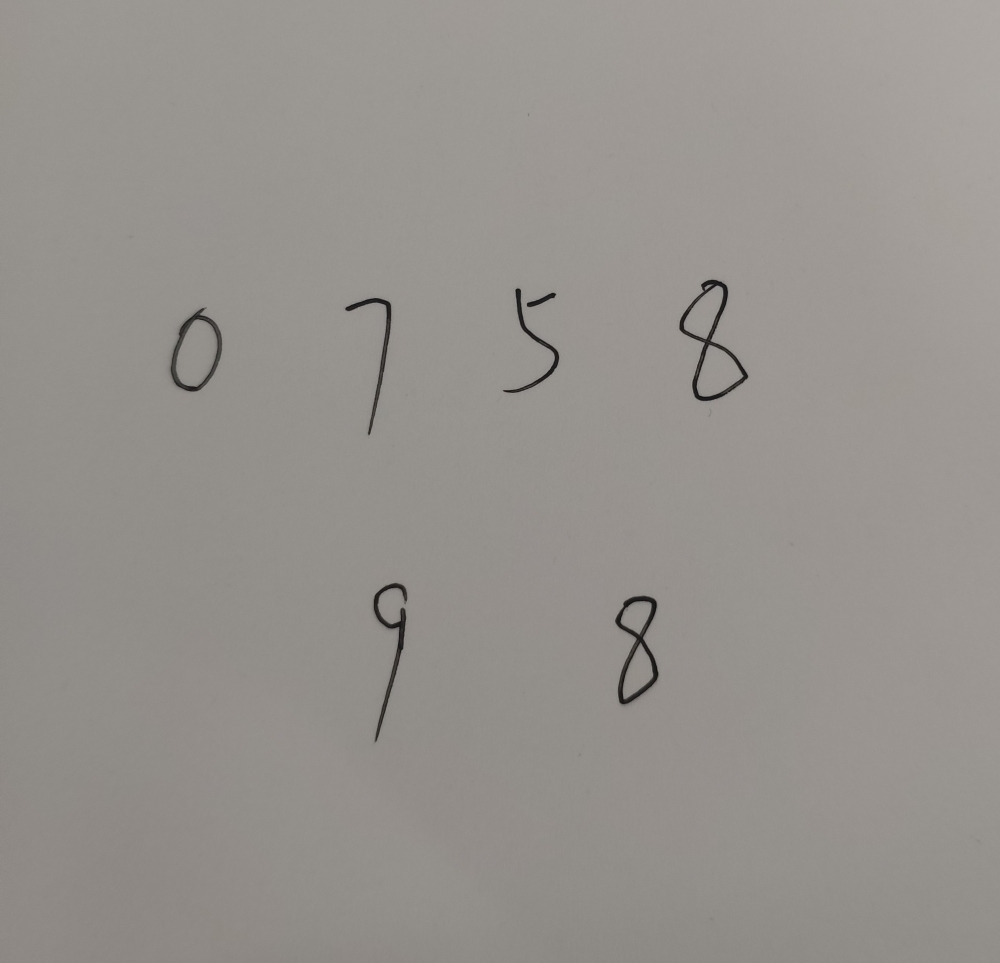 0 7 5 8
9 8